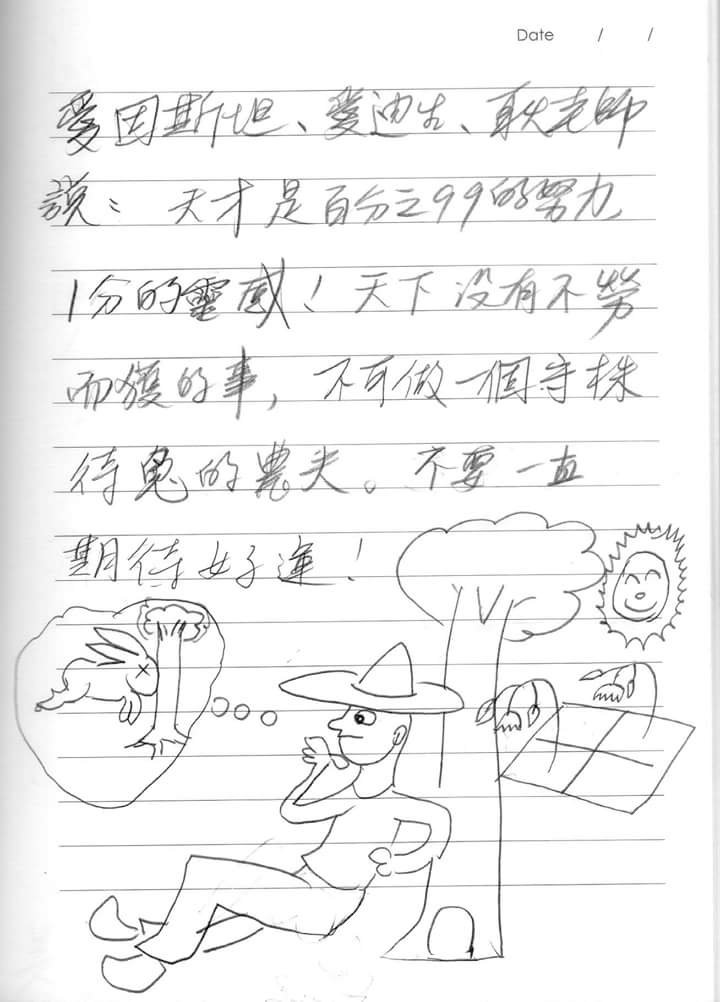 Date / /
愛因斯坦、愛迪生、耿老師
說：天才是百分之99的努力
1分的靈感！天下沒有不勞
而獲的事，不可做一個守株
待兔的農夫。不要一直
期待好運！